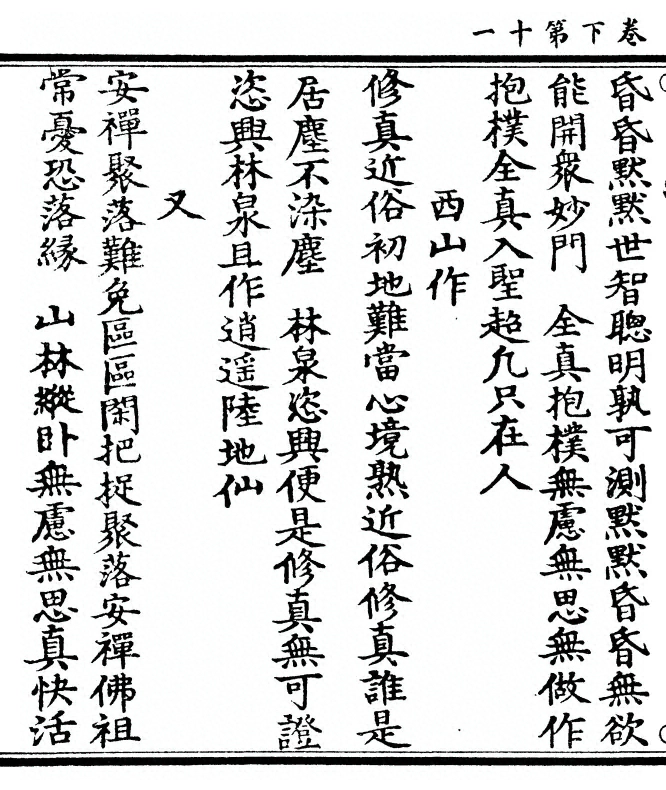 卷下第十一
昏昏默默世智聰明孰可測默默昏昏無欲
能開衆妙門　全真抱樸無慮無思無做作
抱樸全真入聖超凢只在人
西山作
修真近俗初地難當心境熟近俗修真誰是
居塵不染塵　林泉恣興便是修真無可證
恣興林泉且作逍遥陸地仙
又
安禪聚落難免區區閑把捉聚落安禪佛祖
常憂恐落緣　山林縱卧無慮無思真快活